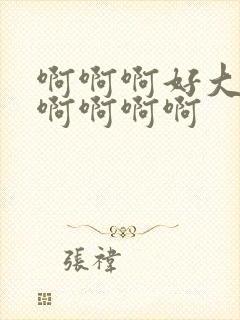 啊啊啊好大
啊啊啊啊
張禕